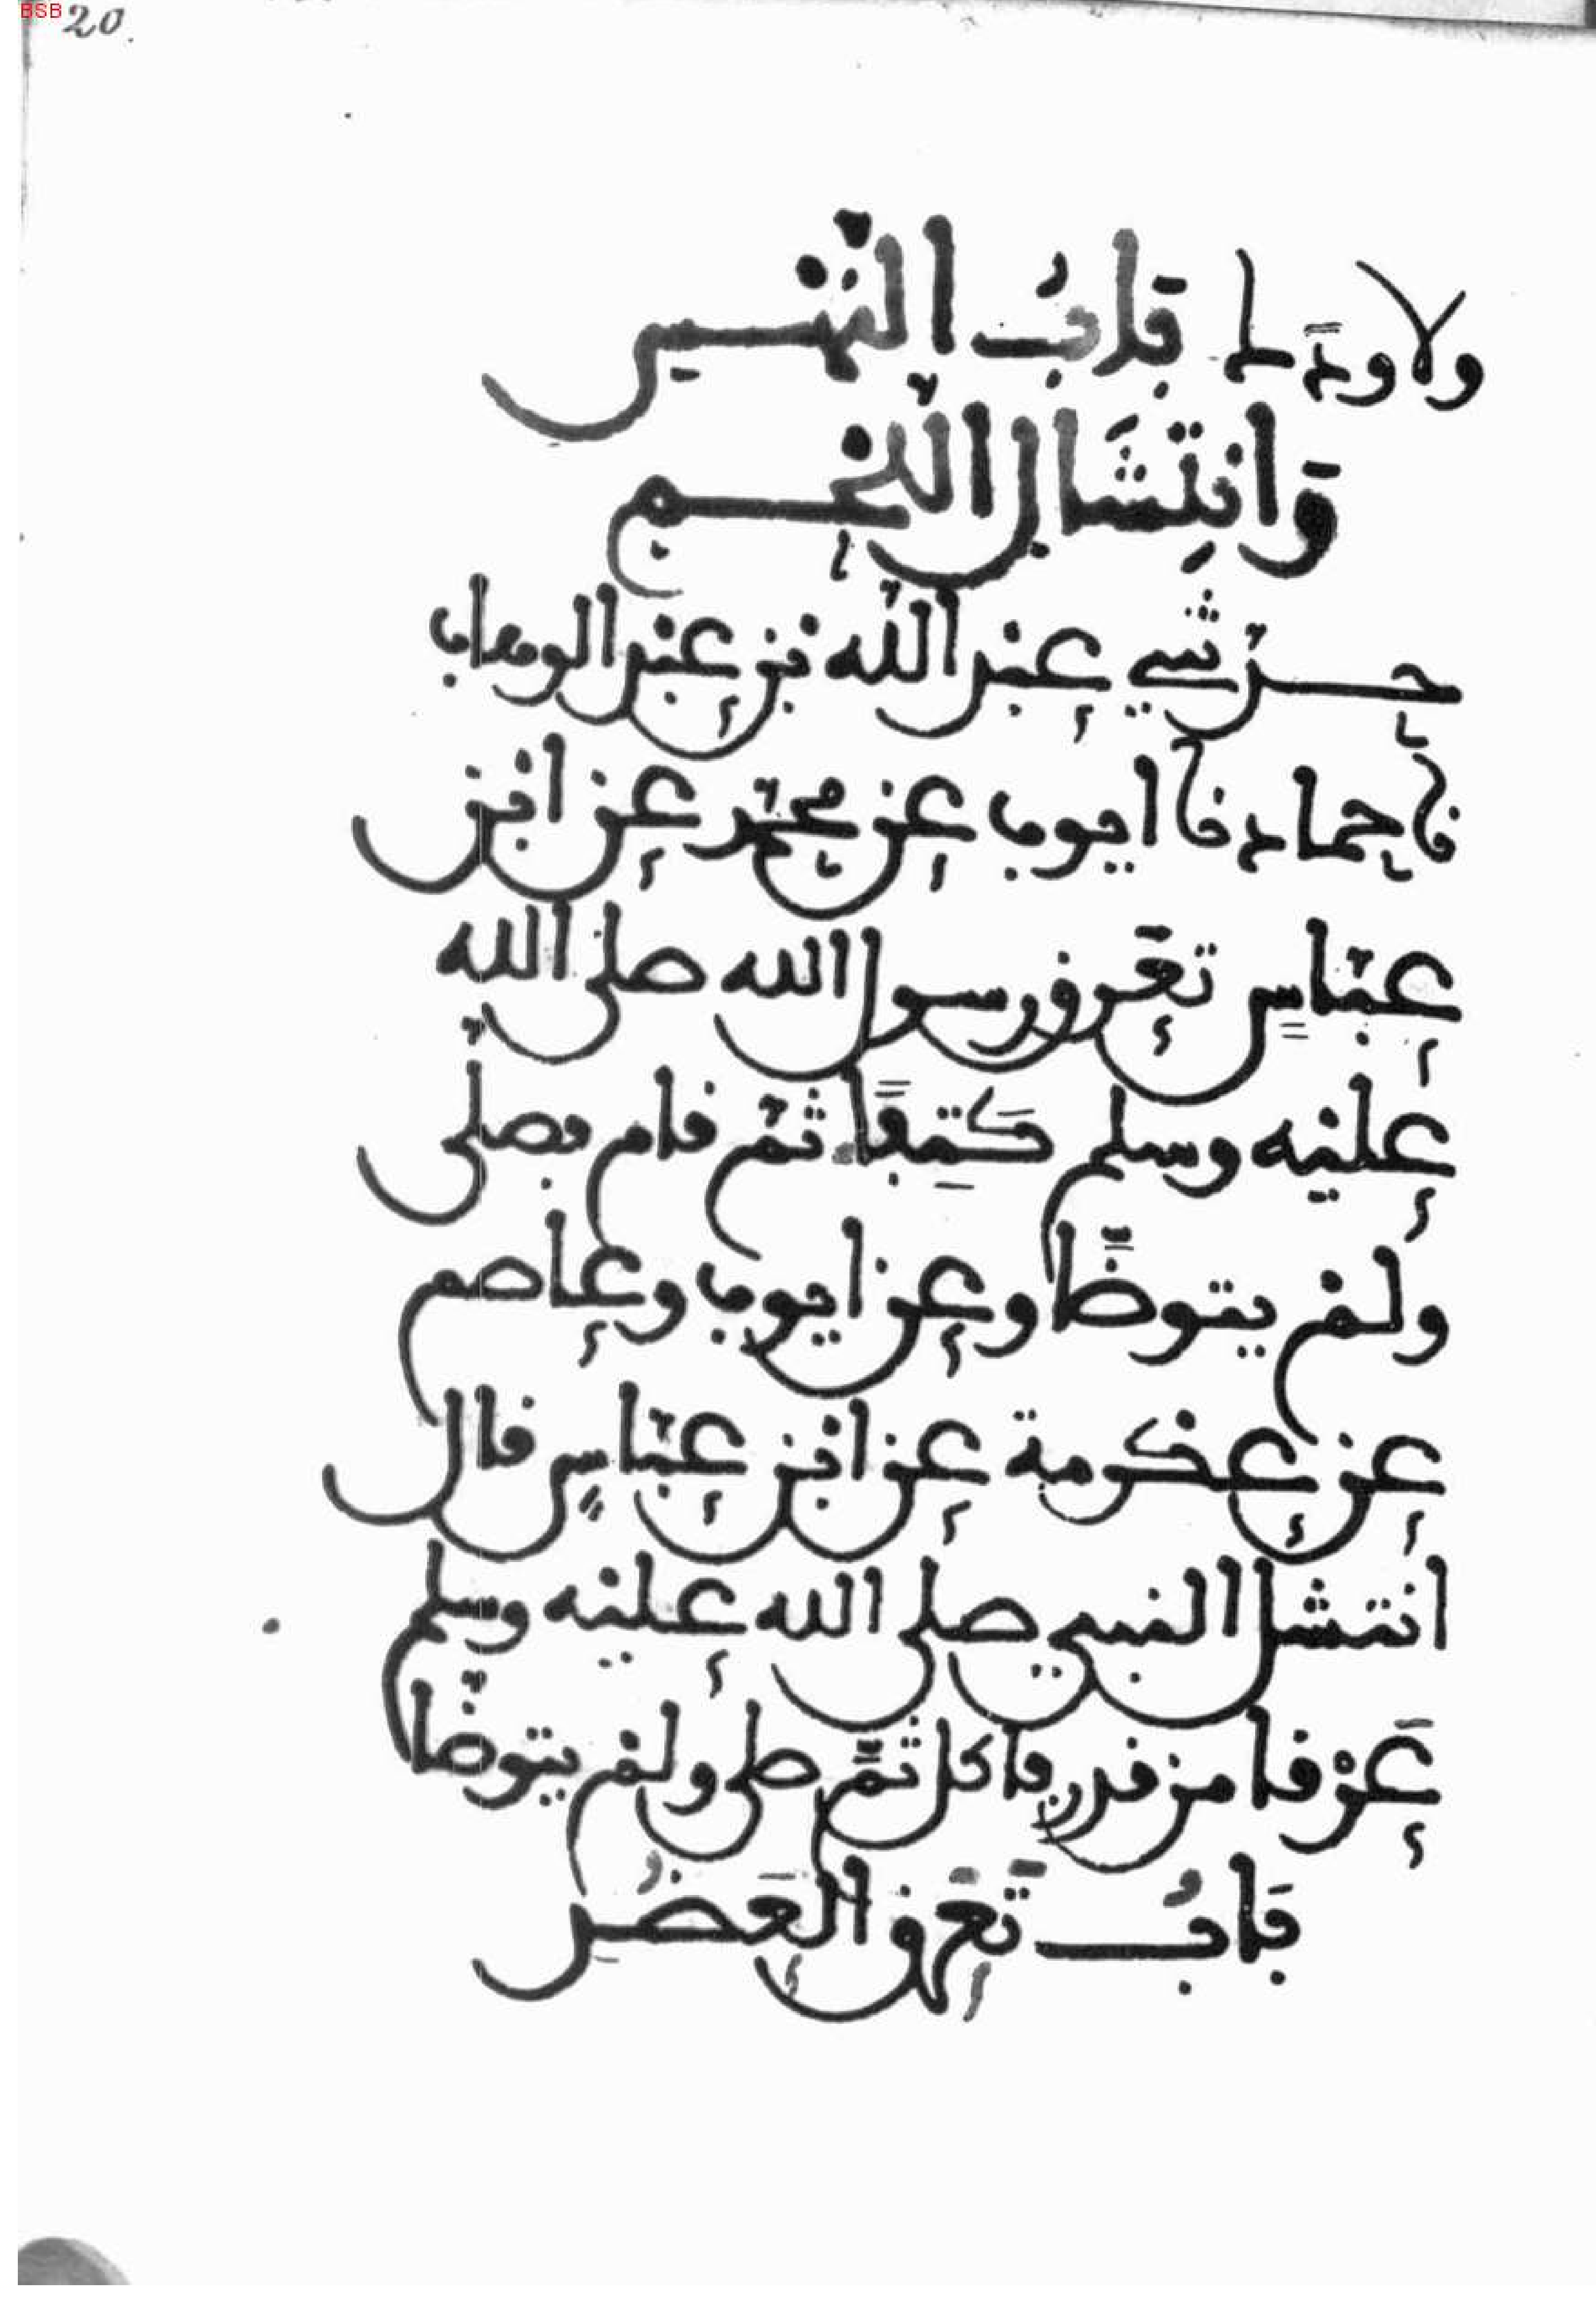 BSB 20.
ولا ودَكا بَابُ النَّهْسِ
وَانتِشَالِ اللَّحْمِ
حدّثني عبد الله بن عبد الوهاب
نا حماد نا ايوب عن محمّد عن ابن
عبّاسٍ تعَرّق رسول الله صلى الله
عليه وسلم كَتِفًا ثمّ قام فصلى
ولم يتوضّأ وعن ايوب وعاصم
عن عكرمة عن ابن عبّاسٍ قال
انتشل النبي صلى الله عليه وسلم
عَرْقا من قدر فاكل ثمّ صلى ولم يتوضّأ
بَابُ تَعَرّقِ العَضُدِ